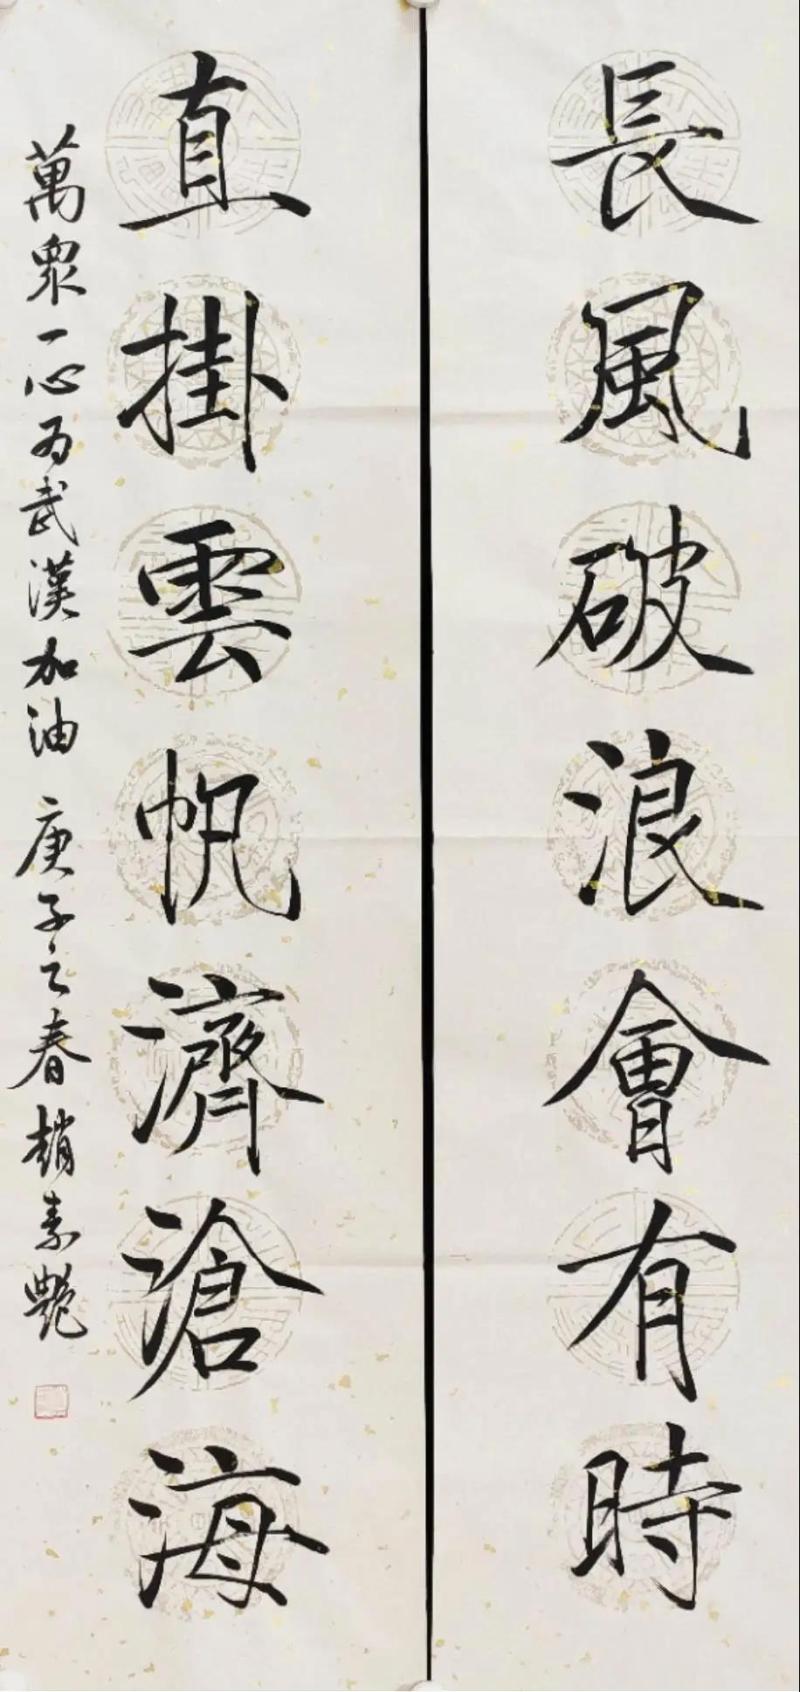 長風破浪會有時
直掛雲帆濟滄海
萬眾一心为武漢加油 庚子之春趙素艷